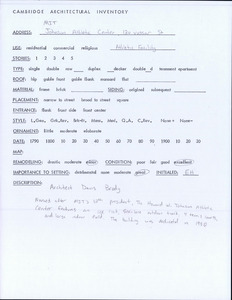 CAMBRIDGE ARCHITECTURAL INVENTORY
MIT
ADDRESS: Johnson Athletic Center 120 Vassar St
USE: residential commercial religious Athletic Facility
STORIES: 1 2 3 4 5
TYPE: single double row duplex decker double d tenement apartment
ROOF: hip gable front gable flank mansard flat
MATERIAL: frame brick SIDING: original subsequent
PLACEMENT: narrow to street broad to street square
ENTRANCE: flank front side front center
STYLE:
ORNAMENT: little moderate elaborate
DATE: 1790 1800 10 20 30 40 50 60 70 80 90 1900 10 20 30
MAP:
REMODELING: drastic moderate CONDITION: poor fair good excellent
IMPORTANCE TO SETTING: detrimental none moderate great INITIALED:
DESCRIPTION:
Architect Davis Brody
MIT's 12th president, the Howard W. Johnson Athletic
Center
and large indoor field. The building was dedicated in 1980